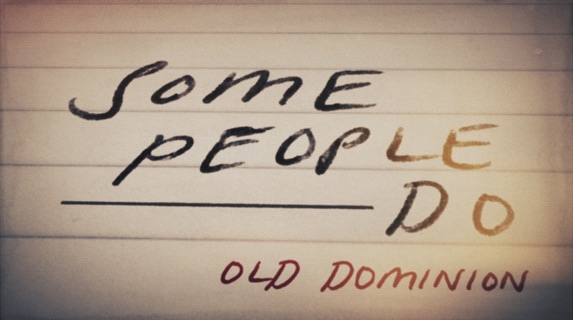 SOME
PEOPLE
DO
OLD DOMINION